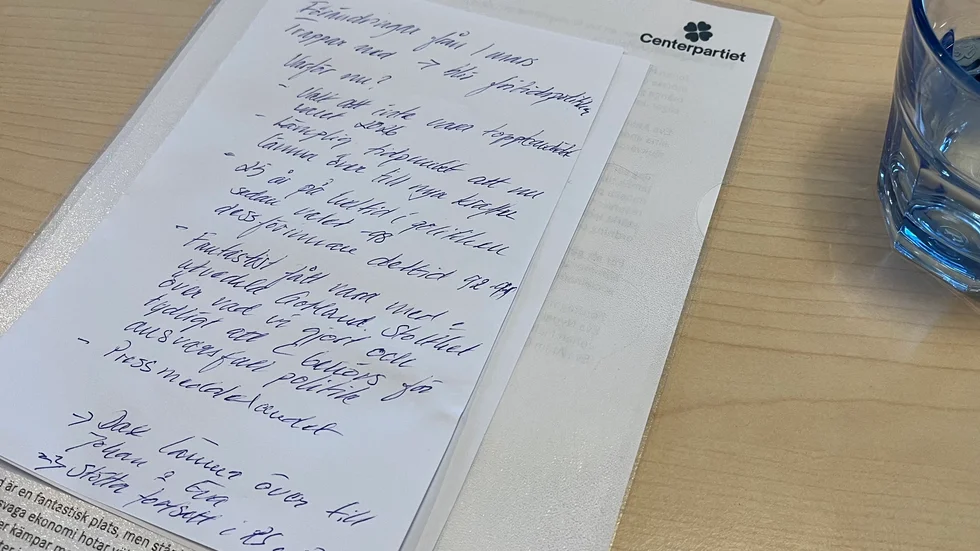 Förändringar från 1 mars
Trappar ned → blir fritidspolitiker
Varför nu?
- Valt att inte vara toppkandidat
valet 2026
- Lämplig tidpunkt att nu
lämna över till nya krafter
- 25 år på heltid i politiken
sedan valet 98
dessförinnan deltid 92-94
- Fantastiskt fått vara med å
utveckla Gotland. Stolthet
över vad vi gjort och
tydligt att C behövs för
ansvarsfull politik
- Pressmeddelandet
→ Dax lämna över till
Johan & Eva
→ Stötta fortsatt i RS
Centerpartiet
d är en fantastisk plats, men
svaga ekonomi hotar
er kämpar